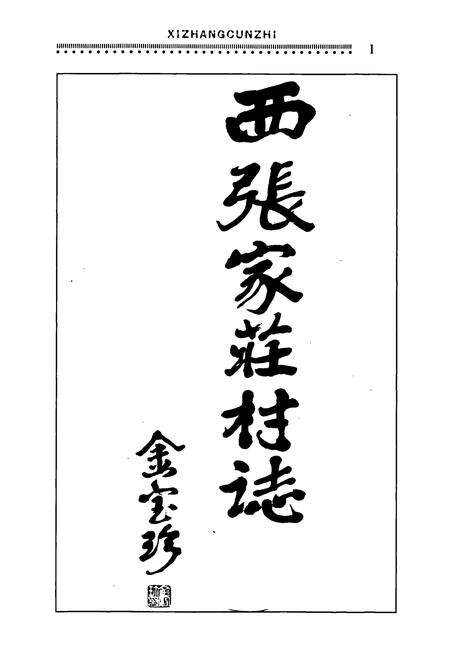 XIZHANGCUNZHI
1
西張家莊村誌
金宝珍